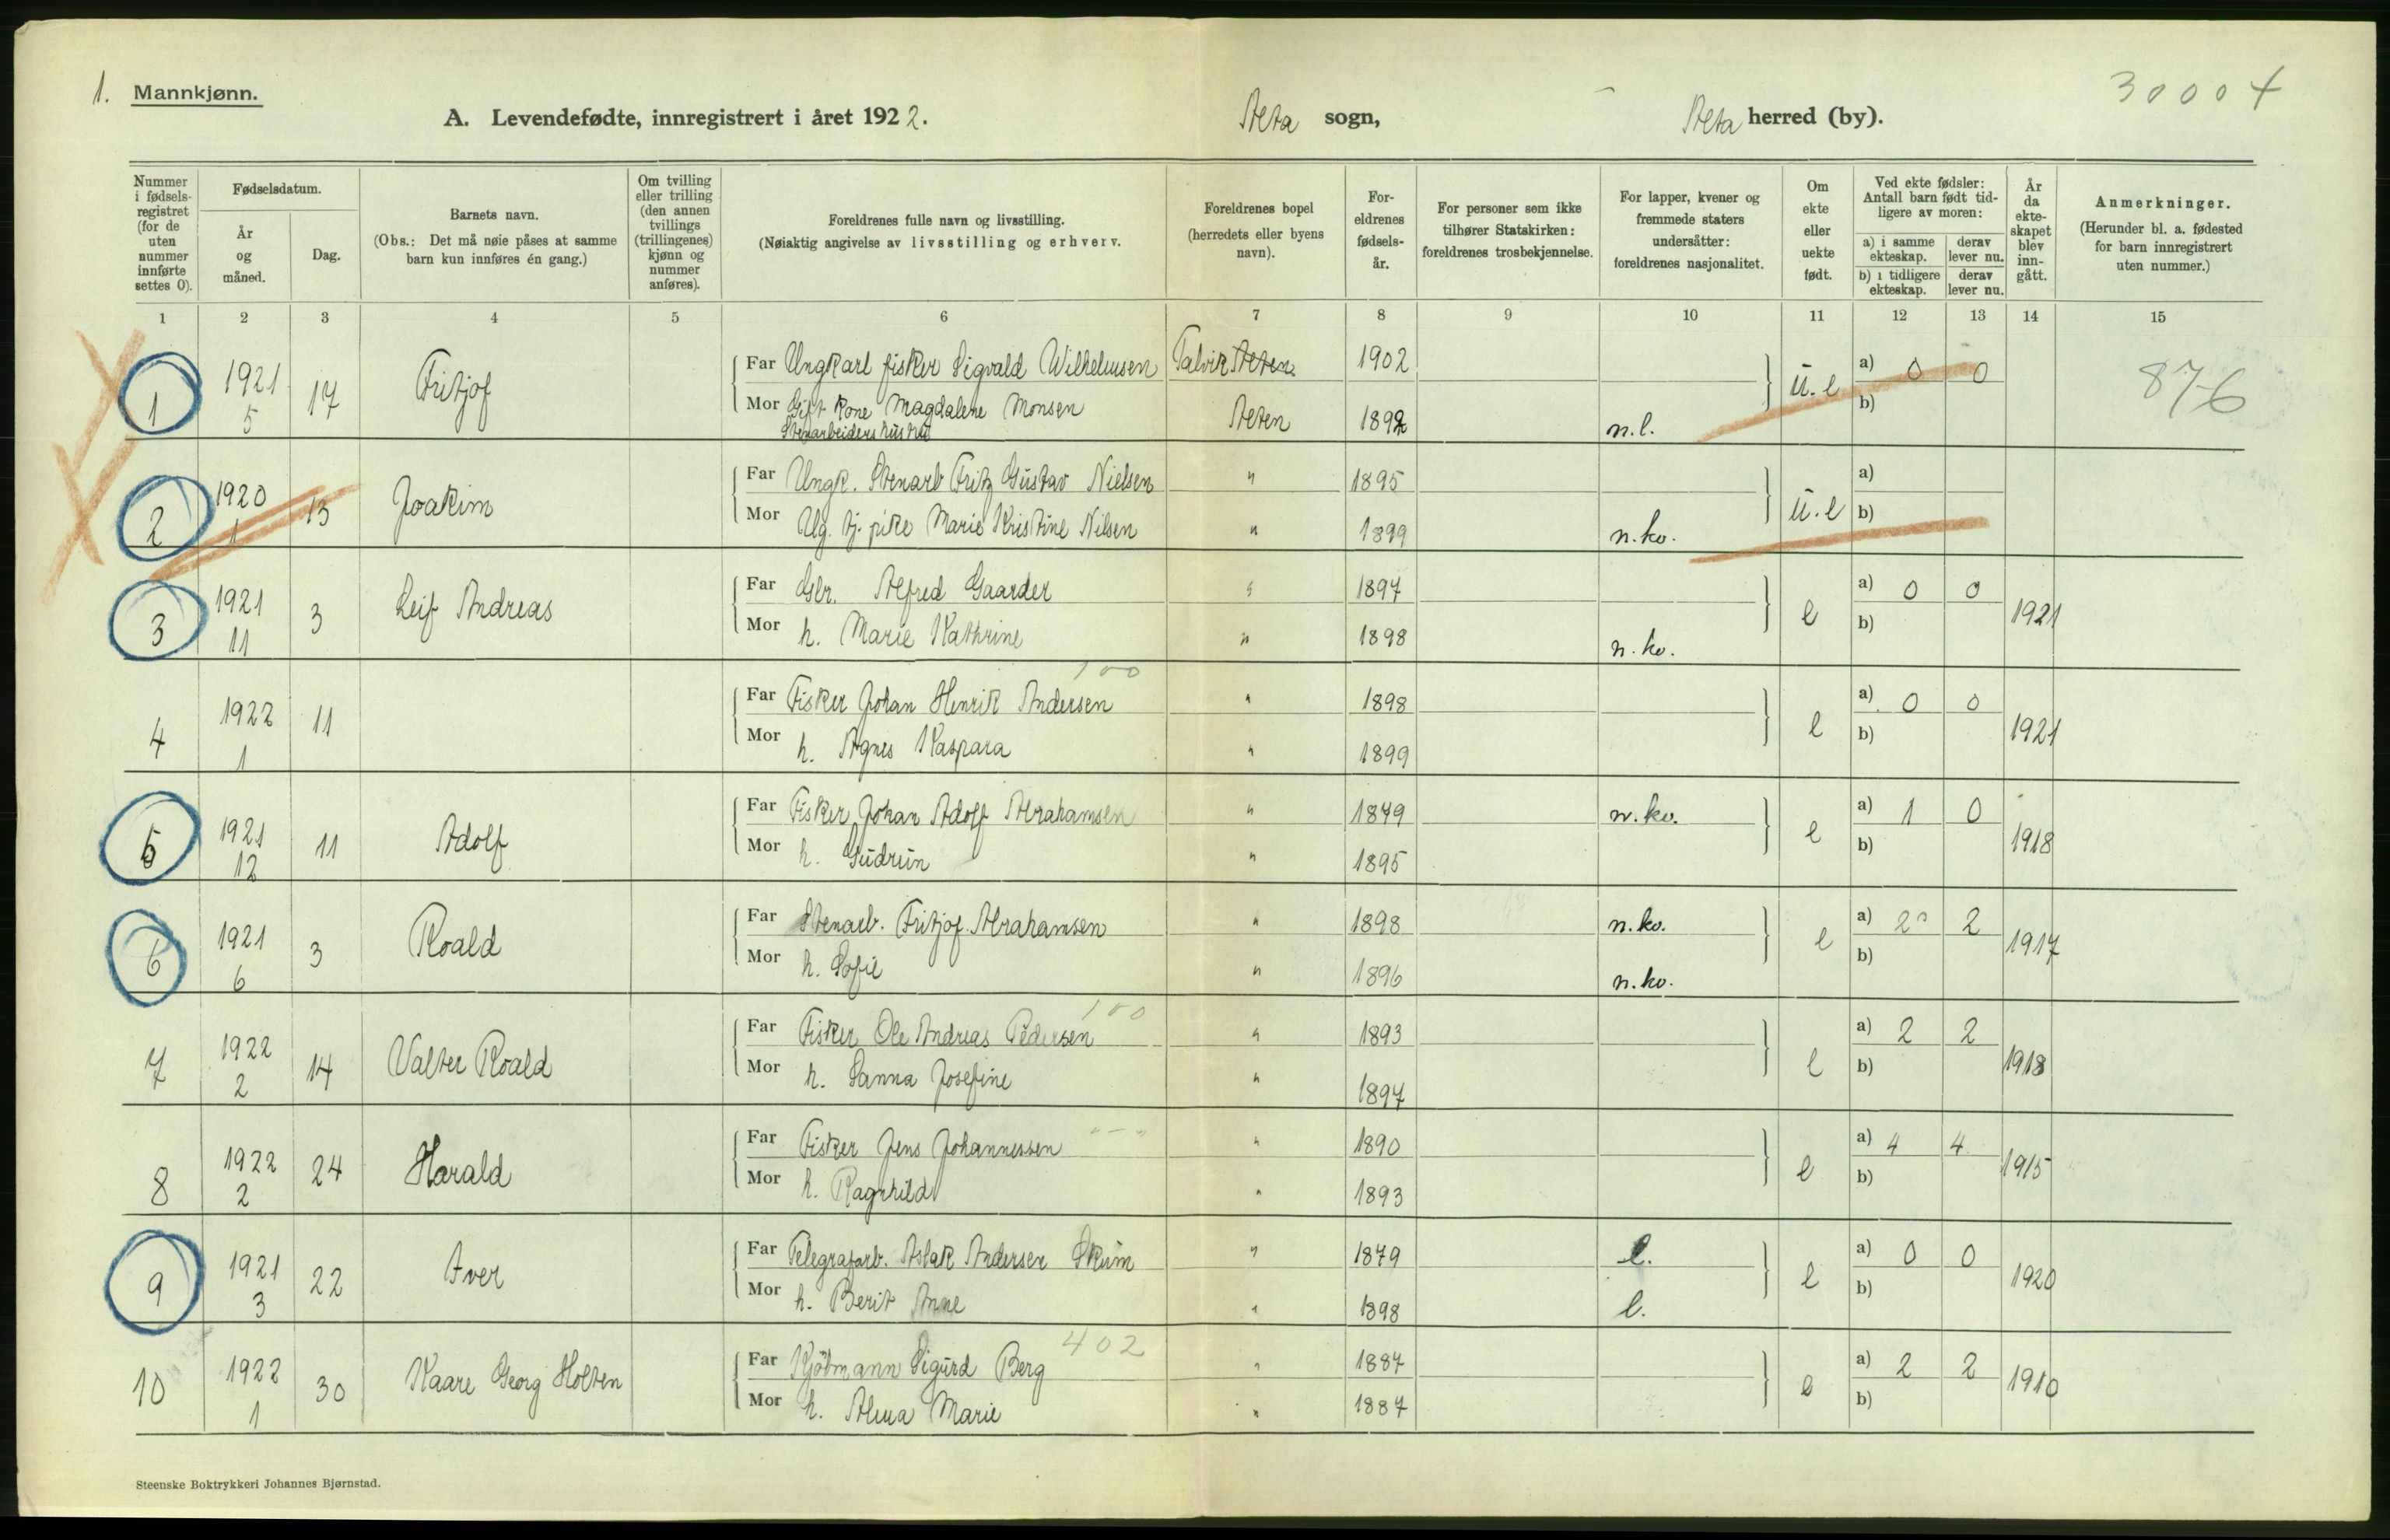 1. Mannkjønn.
A. Levendefødte, innregistrert i året 1922. Alta sogn, Alta herred (by).
30004
Nummer i fødsels-registret (for de uten nummer innførte settes 0).
Fødselsdatum.
År og måned.
Dag.
Barnets navn.
(Obs.: Det må nøie påses at samme barn kun innføres én gang.)
Om tvilling eller trilling (den annen tvillings (trillingenes) kjønn og nummer anføres).
Foreldrenes fulle navn og livsstilling.
(Nøiaktig angivelse av livsstilling og erhverv.
Foreldrenes bopel (herredets eller byens navn).
For-eldrenes fødsels-år.
For personer som ikke tilhører Statskirken: foreldrenes trosbekjennelse.
For lapper, kvener og fremmede staters undersåtter: foreldrenes nasjonalitet.
Om ekte eller uekte født.
Ved ekte fødsler: Antall barn født tid-ligere av moren:
a) i samme ekteskap. derav lever nu.
b) i tidligere ekteskap. derav lever nu.
År da ekte-skapet blev inn-gått.
Anmerkninger.
(Herunder bl. a. fødested for barn innregistrert uten nummer.)
1 2 3 4 5 6 7 8 9 10 11 12 13 14 15
1 1921 5 17 Fritjof
Far Ungkarl fisker Sigvald Wilhelmsen Talvik Alten 1902 u.e a) 0 0 876
Mor Gift kone Magdalene Monsen Alten 1892 n.l. b)
Stenarbeiders hustru
2 1920 1 13 Joakim
Far Ungk. Stenarb Fritz Gustav Nielsen " 1895 u.e a)
Mor Ug. tj. pike Marie Kristine Nilsen " 1899 n.kv. b)
3 1921 11 3 Leif Andreas
Far Gbr. Alfred Gaarder " 1897 e a) 0 0 1921
Mor h. Marie Kathrine " 1898 n.kv. b)
100
4 1922 1 11
Far Fisker Johan Henrik Andersen " 1898 e a) 0 0 1921
Mor h. Agnes Kaspara " 1899 b)
5 1921 12 11 Adolf
Far Fisker Johan Adolf Abrahamsen " 1879 n.kv. e a) 1 0 1918
Mor h. Gudrun " 1895 b)
6 1921 6 3 Roald
Far Stenarb. Fritjof Abrahamsen " 1898 n.kv. e a) 2 2 1917
Mor h. Sofie " 1896 n.kv. b)
100
7 1922 2 14 Valter Roald
Far Fisker Ole Andreas Pedersen " 1893 e a) 2 2 1918
Mor h. Sanna Josefine " 1897 b)
8 1922 2 24 Harald
Far Fisker Jens Johannessen " - " " 1890 e a) 4 4 1915
Mor h. Ragnhild " 1893 b)
9 1921 3 22 Iver
Far Telegrafarb. Aslak Andersen Skum " 1879 l. e a) 0 0 1920
Mor h. Berit Anne " 1898 l. b)
402
10 1922 1 30 Kaare Georg Holten
Far Kjøbmann Sigurd Berg " 1887 e a) 2 2 1910
Mor h. Alma Marie " 1887 b)
Steenske Boktrykkeri Johannes Bjørnstad.